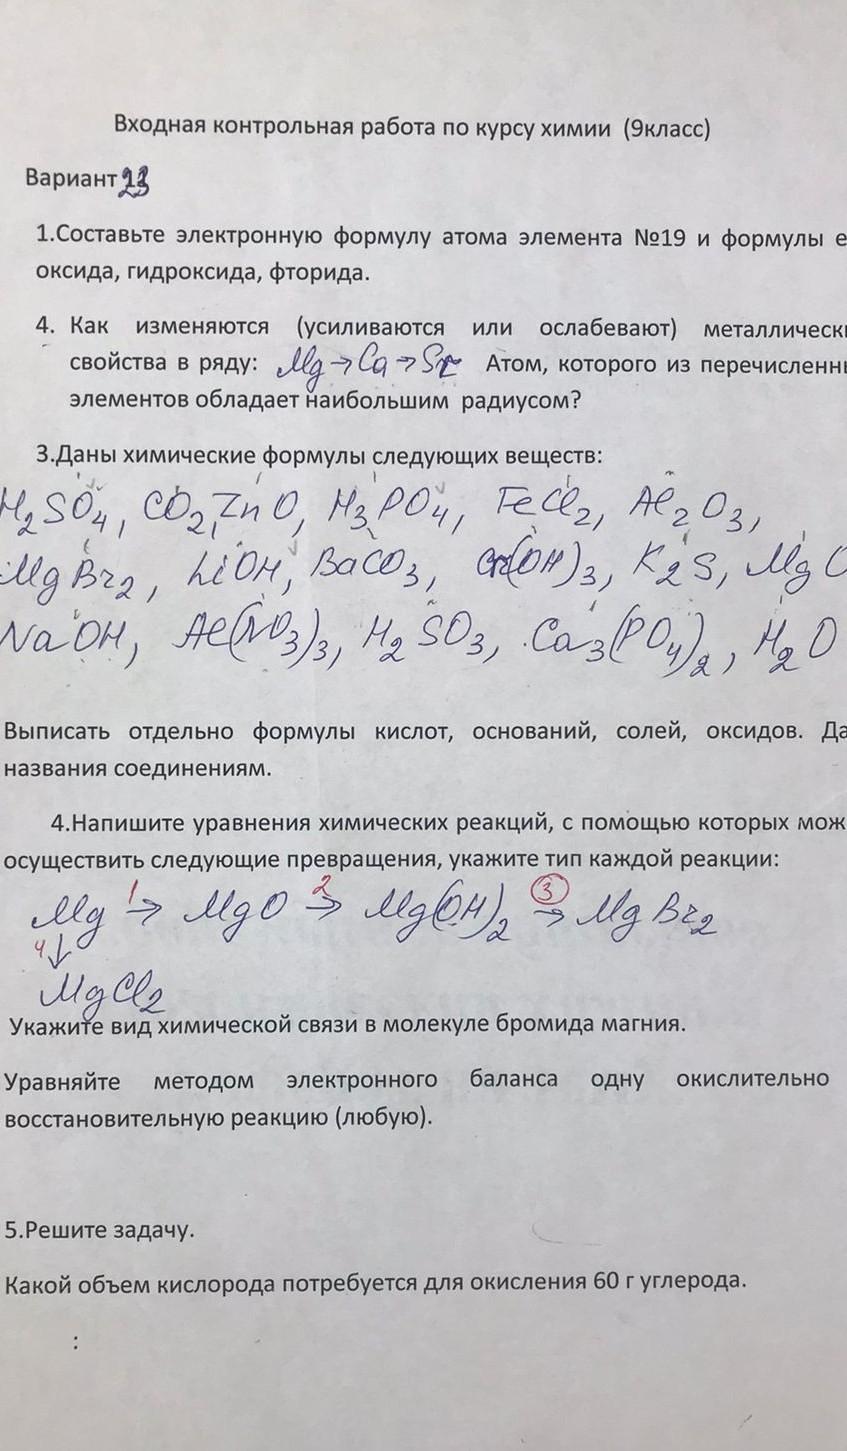 Входная контрольная работа по курсу химии (9класс)
Вариант
1.Составьте электронную формулу атома элемента №19 и формулы е
оксида, гидроксида, фторида.
4. Как изменяются (усиливаются или ослабевают) металлическ
свойства в ряду: Mg → Ca → Sr Атом, которого из перечисленн
элементов обладает наибольшим радиусом?
3.Даны химические формулы следующих веществ:
H₂SO₄, CO₂, ZnO, H₃PO₄, FeCl₂, Al₂O₃,
MgBr₂, LiOH, BaCO₃, Cr(OH)₃, K₂S, MgO
NaOH, Al(NO₃)₃, H₂SO₃, Ca₃(PO₄)₂, H₂O
Выписать отдельно формулы кислот, оснований, солей, оксидов. Да
названия соединениям.
4.Напишите уравнения химических реакций, с помощью которых мож
осуществить следующие превращения, укажите тип каждой реакции:
Mg 1→ MgO 2→ Mg(OH)₂ 3→ MgBr₂
4↓
MgCl₂
Укажите вид химической связи в молекуле бромида магния.
Уравняйте методом электронного баланса одну окислительно
восстановительную реакцию (любую).
5.Решите задачу.
Какой объем кислорода потребуется для окисления 60 г углерода.
: